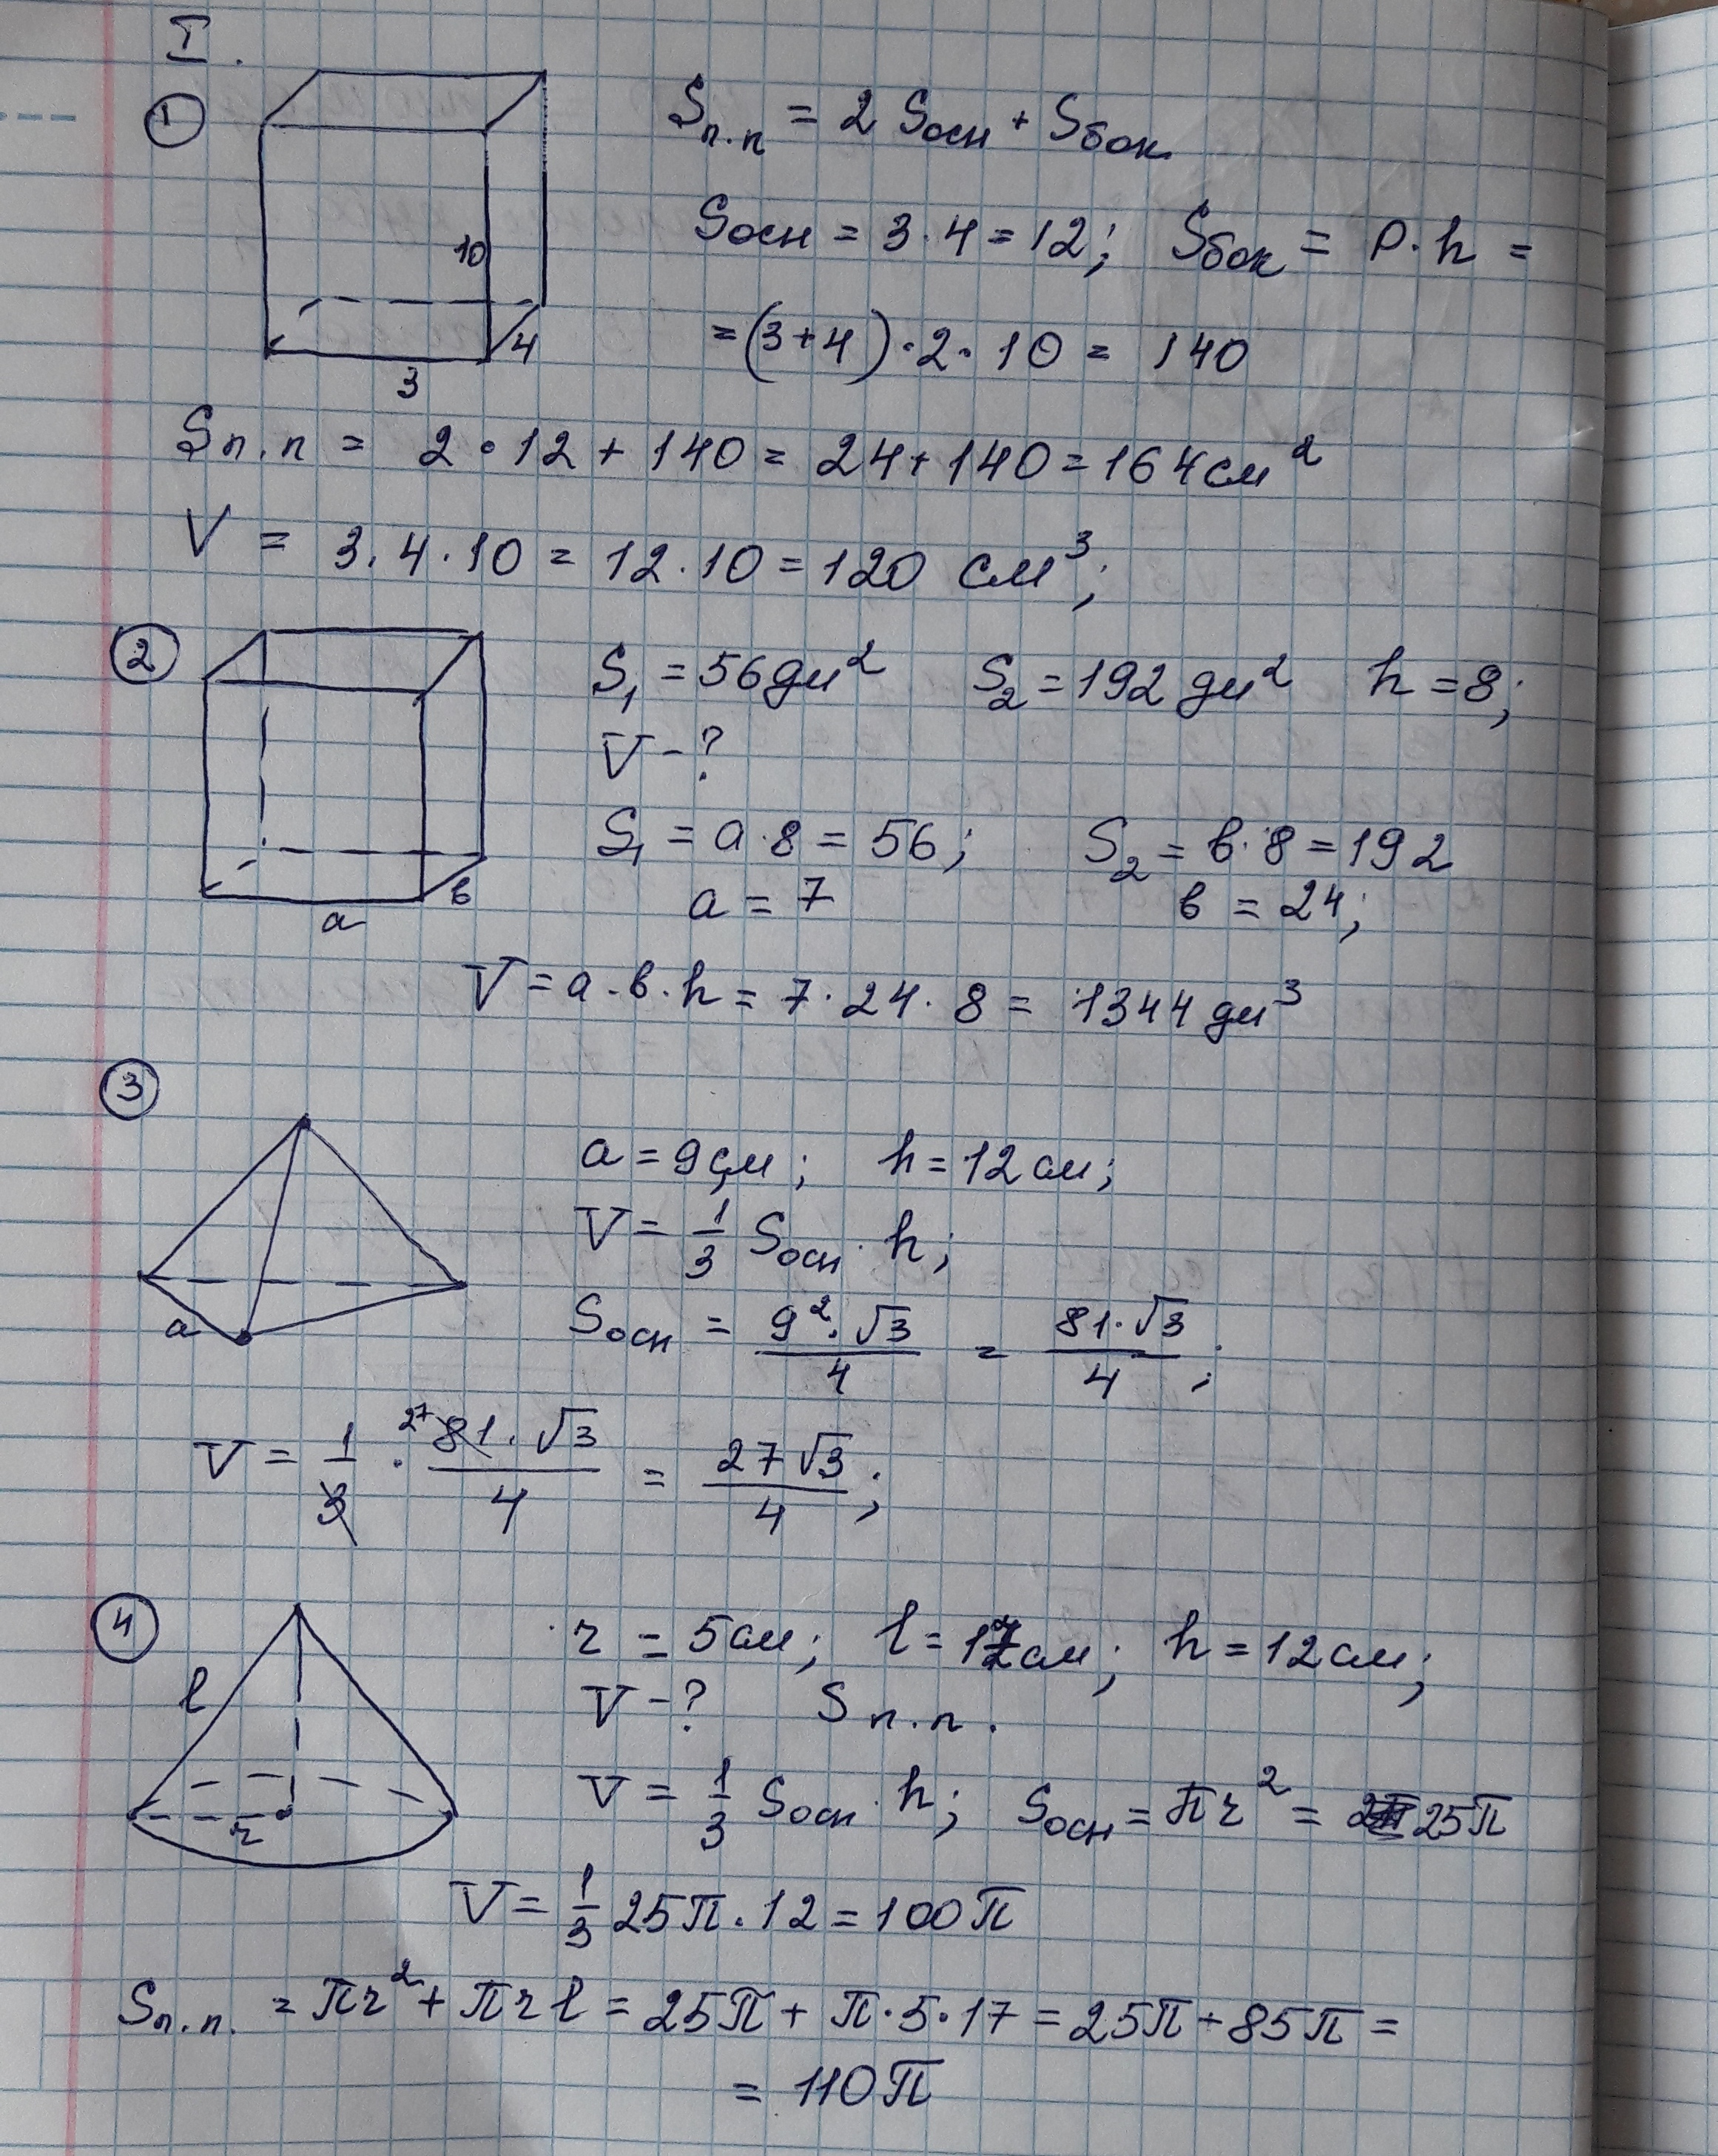 I.
1
Sп.п = 2 Sосн + Sбок
Sосн = 3·4 = 12; Sбок = P·h =
= (3+4)·2·10 = 140
10
4
3
Sп.п = 2·12 + 140 = 24 + 140 = 164 см²
V = 3·4·10 = 12·10 = 120 см³;
2
S₁ = 56 дм² S₂ = 192 дм² h = 8;
V - ?
S₁ = a·8 = 56; S₂ = в·8 = 192
a = 7 в = 24;
в
a
V = a·в·h = 7·24·8 = 1344 дм³
3
a = 9 см; h = 12 см;
V = 1/3 Sосн·h;
Sосн = 9²·√3/4 = 81·√3/4;
a
V = 1/3 · ²⁷81·√3/4 = 27√3/4;
4
r = 5 см; l = 17 см; h = 12 см;
l
V - ? Sп.п.
V = 1/3 Sосн·h; Sосн = πr² = 25π
r
V = 1/3 25π·12 = 100π
Sп.п. = πr² + πrl = 25π + π·5·17 = 25π + 85π =
= 110π